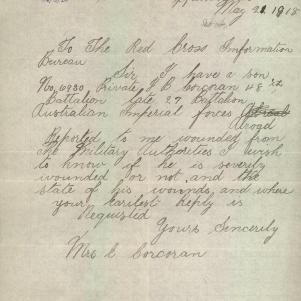 May 21. 1918
To The Red Cross Information
Bureau
Sir I have a son
No, 6980, Private J B Corcoran 48
Battalion late 27 Battalion
Australian Imperial forces
Abrogd
Reported to me wounded from
The Military Authorities I wish
to know if he is severely
wounded or not, and the
state of his wounds, and where
your earliest reply is
Requested
Yours Sincerily
Mrs C Corcoran